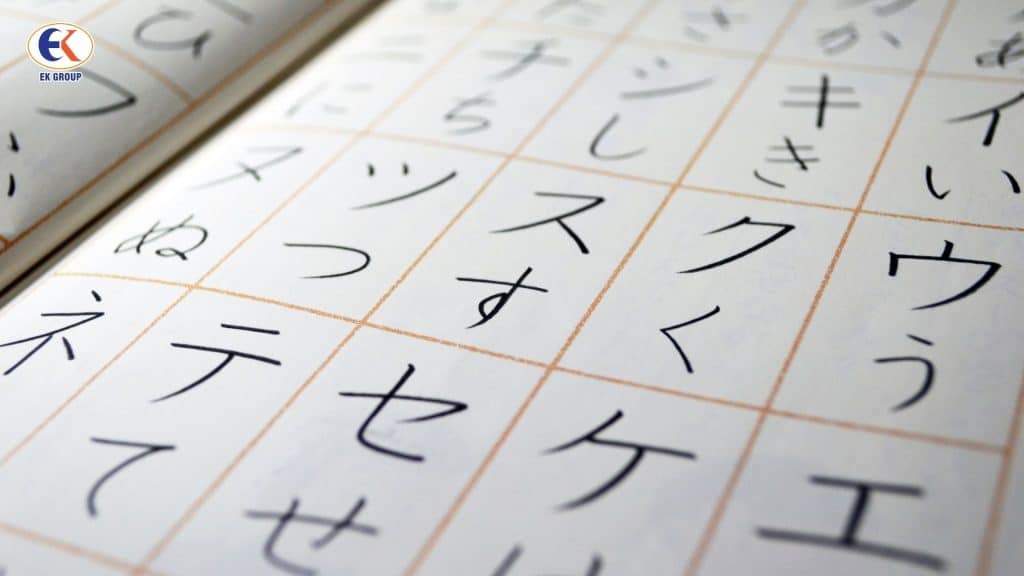 EK
EK GROUP
ひ
さ か あ
ニ チ シ キ イ
に ち し き い
ヌ ツ ス ク ウ
ぬ つ す く う
ネ テ セ ケ エ
て せ